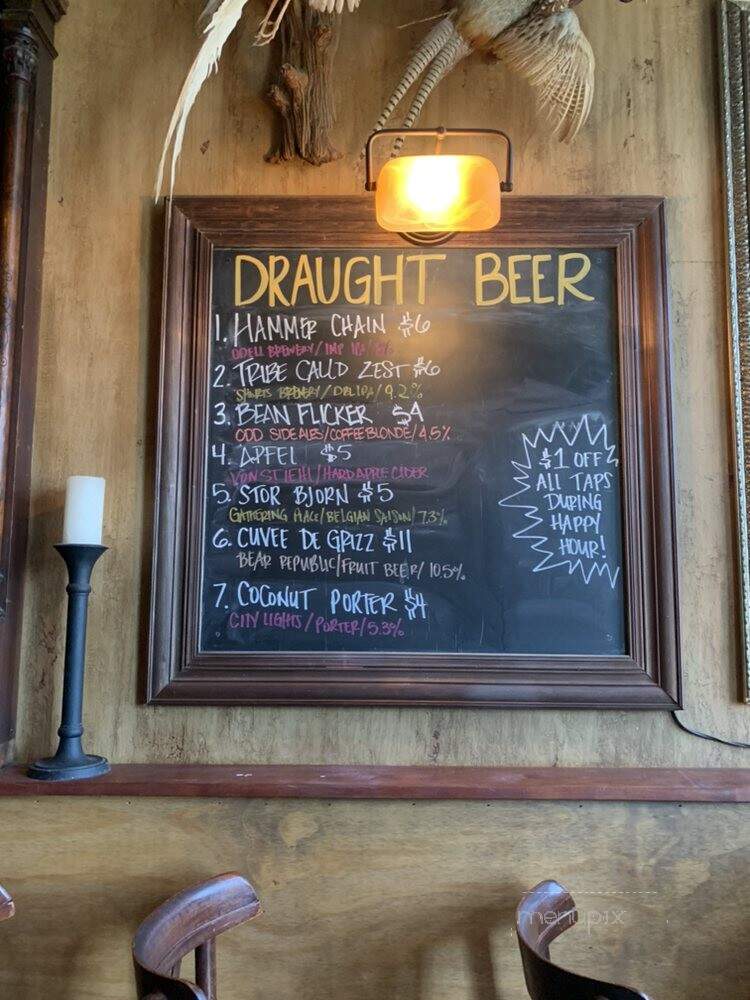 DRAUGHT BEER
1. HAMMER CHAIN $6
ODELL BREWERY/IMP IPA/
2. TRIBE CALLD ZEST $6
BREWERY/DBL IPA/9.2%
3. BEAN FLICKER $4
ODD SIDE ALES/COFFEE BLONDE/4.5%
4. APFEL $5
VON STIEHL/HARD APPLE CIDER
5. STOR BJORN $5
GATHERING PLACE/BELGIAN SAISON/7.3%
6. CUVEE DE GRIZZ $11
BEAR REPUBLIC/FRUIT BEER/10.5%
7. COCONUT PORTER $4
CITY LIGHTS/PORTER/5.3%
$1 OFF
ALL TAPS
DURING
HAPPY
HOUR!
menupix